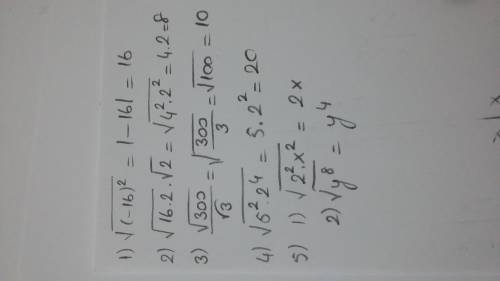 1) √(-16)² = |-16| = 16
2) √16·2·√2 = √4²·2² = 4·2=8
3) √300/√3 = √300/3 = √100 = 10
4) √5²·2⁴ = 5·2² = 20
5) 1) √2²·x² = 2x
2) √y⁸ = y⁴